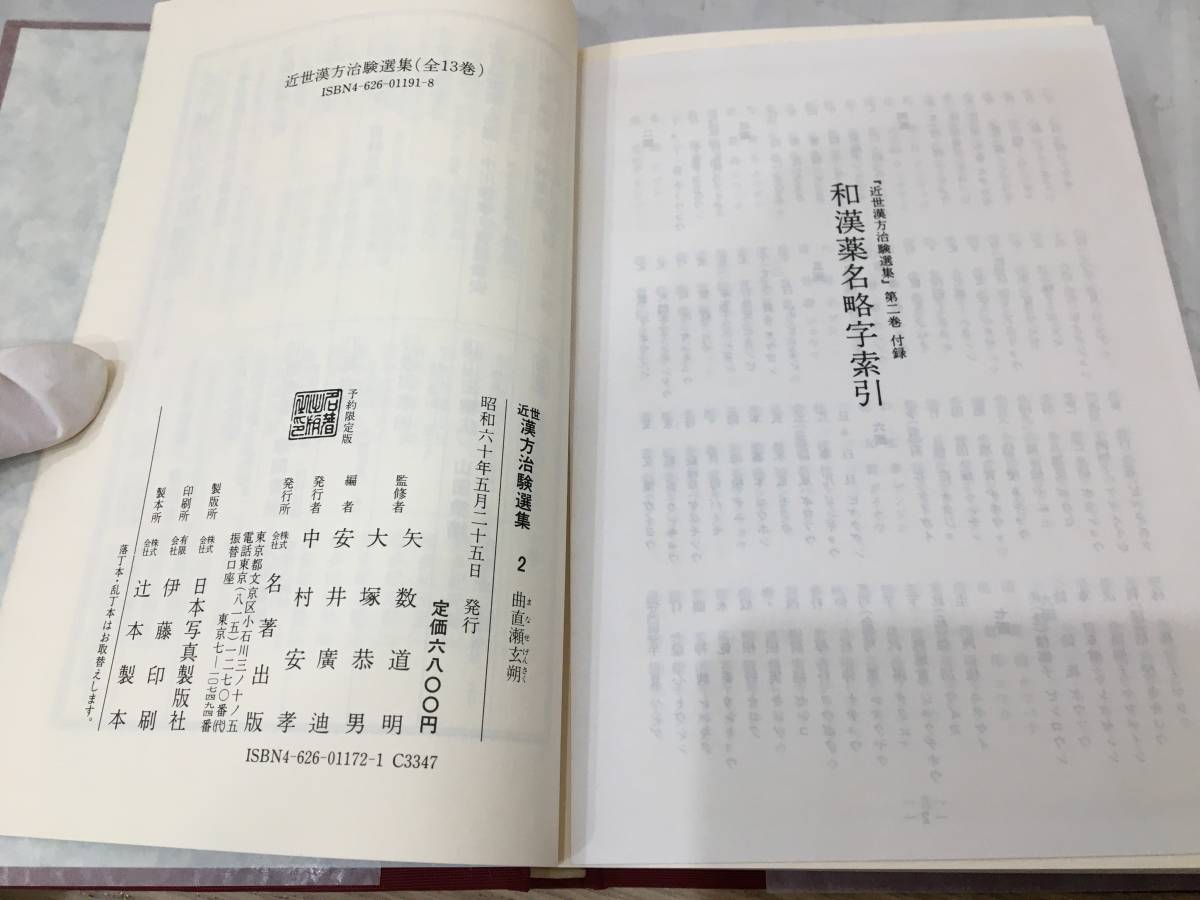 近世漢方治験選集(全13巻)
ISBN4-626-01191-8
近世 漢方治験選集 2 曲直瀬玄朔
まなせげんさく
昭和六十年五月二十五日 発行
定価六八〇〇円
監修者 矢数道明
大塚恭男
編者 安井廣迪
発行者 中村安孝
発行所 株式会社 名著出版
東京都文京区小石川三ノ十ノ五
電話東京(八一五)一二七〇番(代)
振替口座 東京七―二〇七四九四番
製版所 株式会社 日本写真製版社
印刷所 有限会社 伊藤印刷
製本所 株式会社 辻本製本
落丁本・乱丁本はお取替えします。
予約限定版
名著出版之印
ISBN4-626-01172-1 C3347
『近世漢方治験選集』第二巻 付録
和漢薬名略字索引